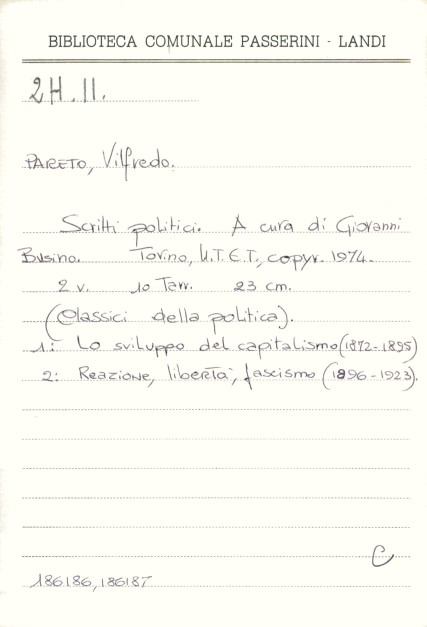 BIBLIOTECA COMUNALE PASSERINI - LANDI
2H.11.
PARETO, Vilfredo.
Scritti politici. A cura di Giovanni
Busino. Torino, U.T.E.T., copyr. 1974.
2 v. 10 Tav. 23 cm.
(Classici della politica).
1: Lo sviluppo del capitalismo (1872-1895)
2: Reazione, libertà, fascismo (1896-1923).
C
186186, 186187